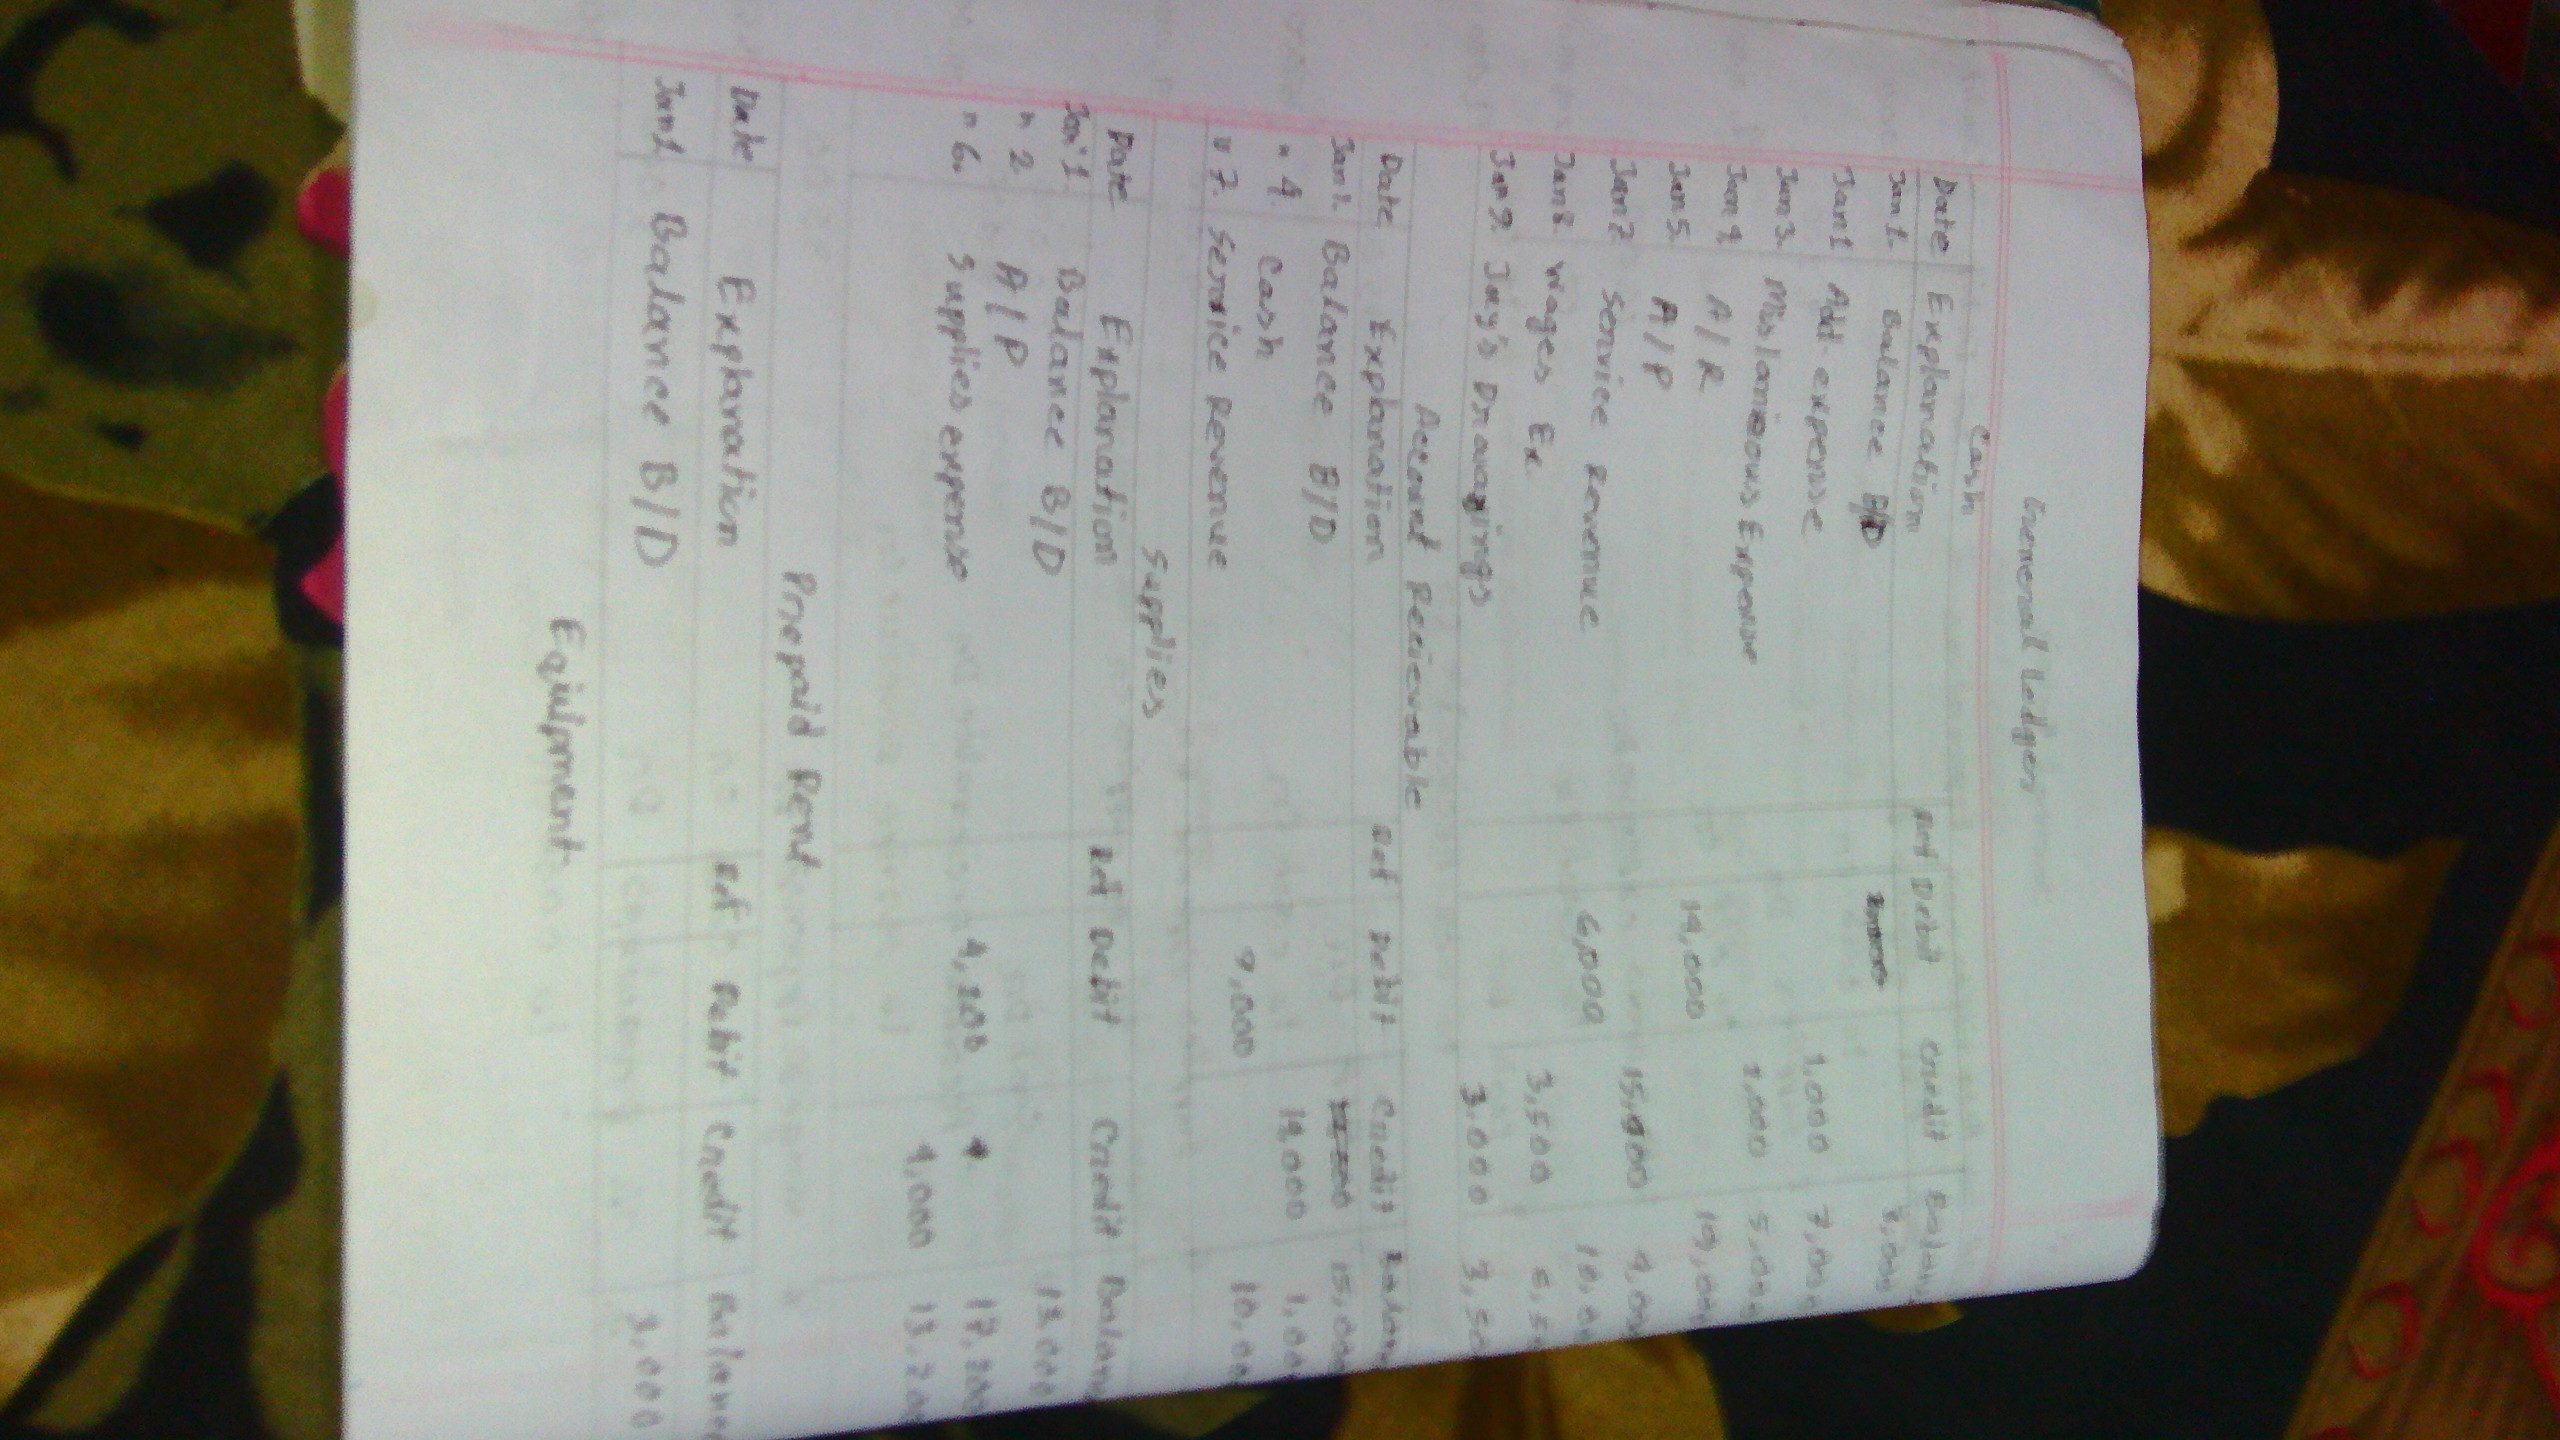 General Ledger
Cash
Date Explanation Ref Debit Credit Balanc
Jan 1. Balance B/D 8,000
Jan 1 Add. expense 1,000 7,000
Jan 3. Mislanious Expense 2,000 5,000
Jan 4 A/R 14,000 19,00
Jan 5. A/P 15,000 4,00
Jan 7 Service Revenue 6,000 10,00
Jan 8 Wages Ex. 3,500 6,50
Jan 9. Jay's Drawings 3,000 3,50
Account Recievable
Date Explanation Ref Debit Credit Balanc
Jan 1. Balance B/D 15,000
" 4 Cash 14,000 1,00
" 7. Service Revenue 9,000 10,00
Supplies
Date Explanation Ref Debit Credit Balanc
Jan 1 Balance B/D 13,000
" 2 A/P 4,200 17,200
" 6. Supplies expense 4,000 13,200
Prepaid Rent
Date Explanation Ref Debit Credit Balance
Jan 1 Balance B/D 3,000
Equipment